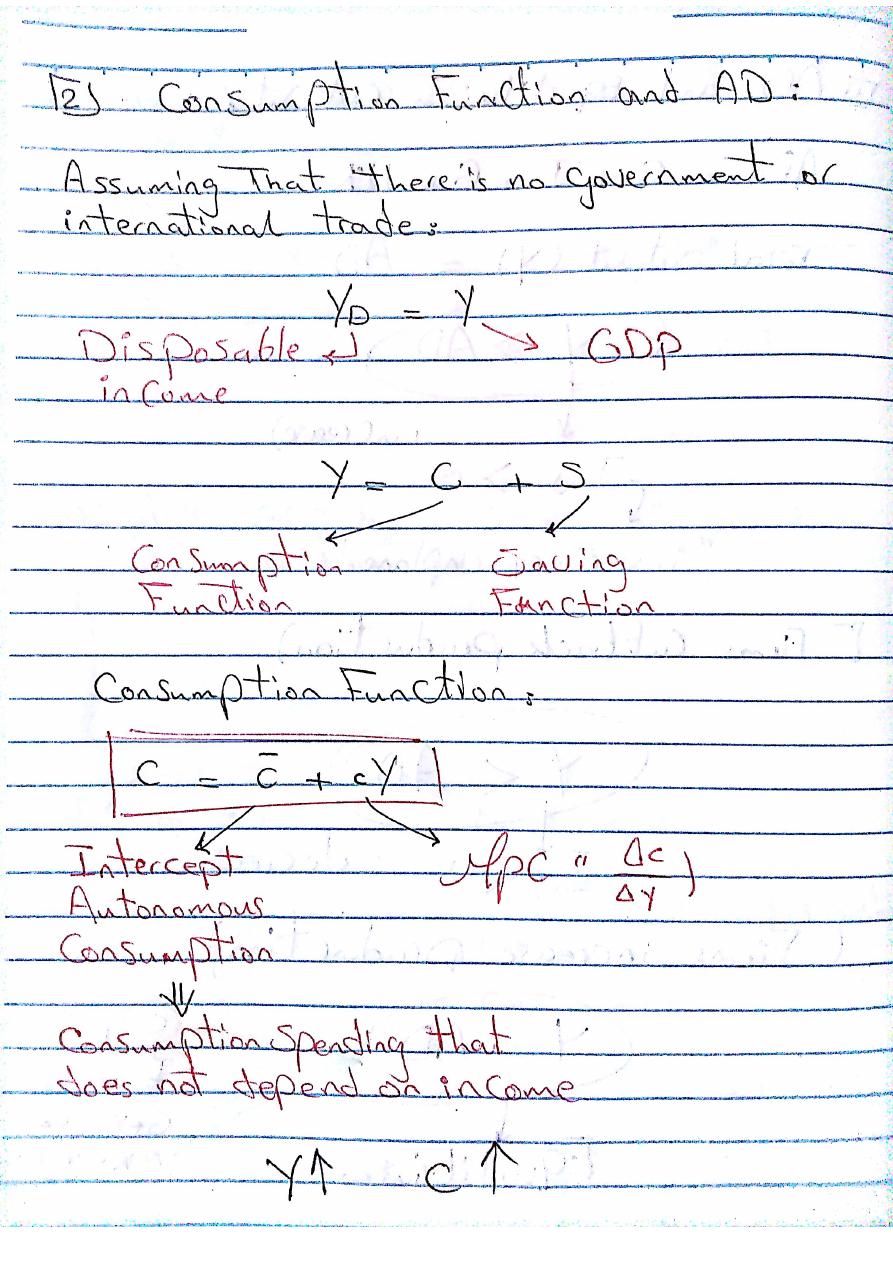 2) Consumption Function and AD:
Assuming That there is no government or
international trade:
YD = Y
Disposable GDP
income
Y = C + S
Consumption Saving
Function Function
Consumption Function:
C = c̄ + cY
Intercept MPC " Δc/ΔY )
Autonomous
Consumption
⇓
Consumption Spending that
does not depend on income
Y↑ C↑